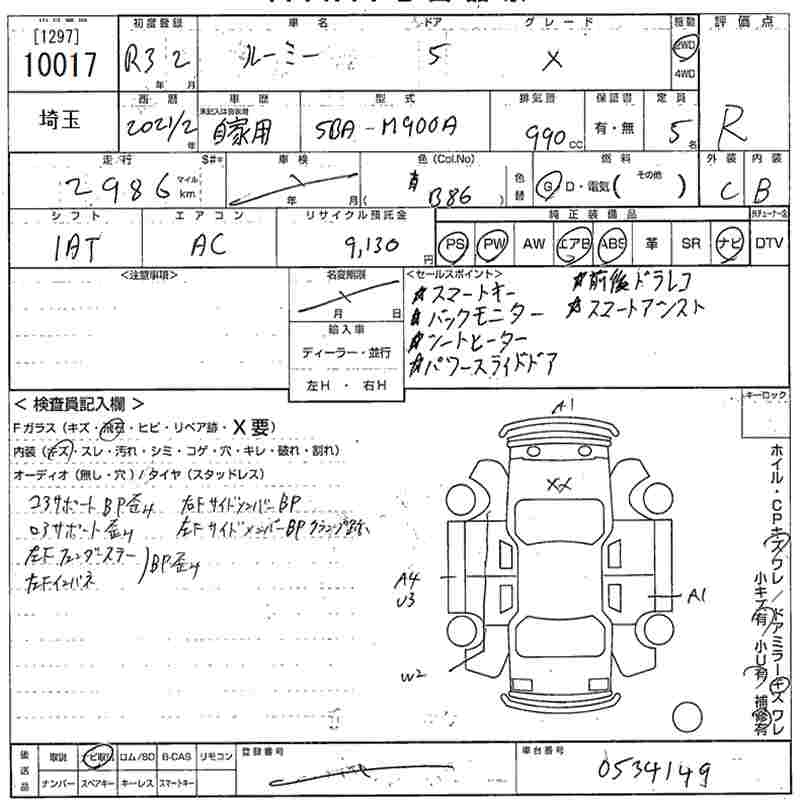 [1297]
10017
初度登録
R3 2
年 月
車名
ルーミー
ドア
5
グレード
X
駆動
2WD
4WD
評価点
R
埼玉
西暦
2021/2
年
車歴
未記入は自家用
自家用
型式
5BA-M900A
排気量
990 cc
保証書
有・無
定員
5 名
走行
S#*
2986
マイル
km
車検
年 月
色(Col.No)
B86
色替
燃料
G D・電気( その他 )
外装
C
内装
B
シフト
IAT
エアコン
AC
リサイクル預託金
9,130 円
純正装備品
PS PW AW エアB ABS 革 SR ナビ DTV
<注意事項>
名変期限
月 日
輸入車
ディーラー・並行
左H・右H
<セールスポイント>
☆スマートキー
☆バックモニター
☆シートヒーター
☆パワースライドドア
☆前後ドラレコ
☆スマートアシスト
<検査員記入欄>
Fガラス(キズ・飛石・ヒビ・リペア跡・X要)
内装(キズ・スレ・汚れ・シミ・コゲ・穴・キレ・破れ・割れ)
オーディオ(無し・穴)/タイヤ(スタッドレス)
コアサポートBP歪み
右FサイドメンバーBP
ロアサポート歪み
左FサイドメンバーBPクランプ跡
左Fフェンダーステー
左Fインパネ
BP歪み
キーロック
A1
XX
A4
U3
A1
W2
ホイル・CPキズワレ/ドアミラーキズワレ
小キズ有/小U有/補修有
後送品
取説 ナビ取説 ロム/SD B-CAS リモコン
ナンバー スペアキー キーレス スマートキー
登録番号
車台番号
0534149